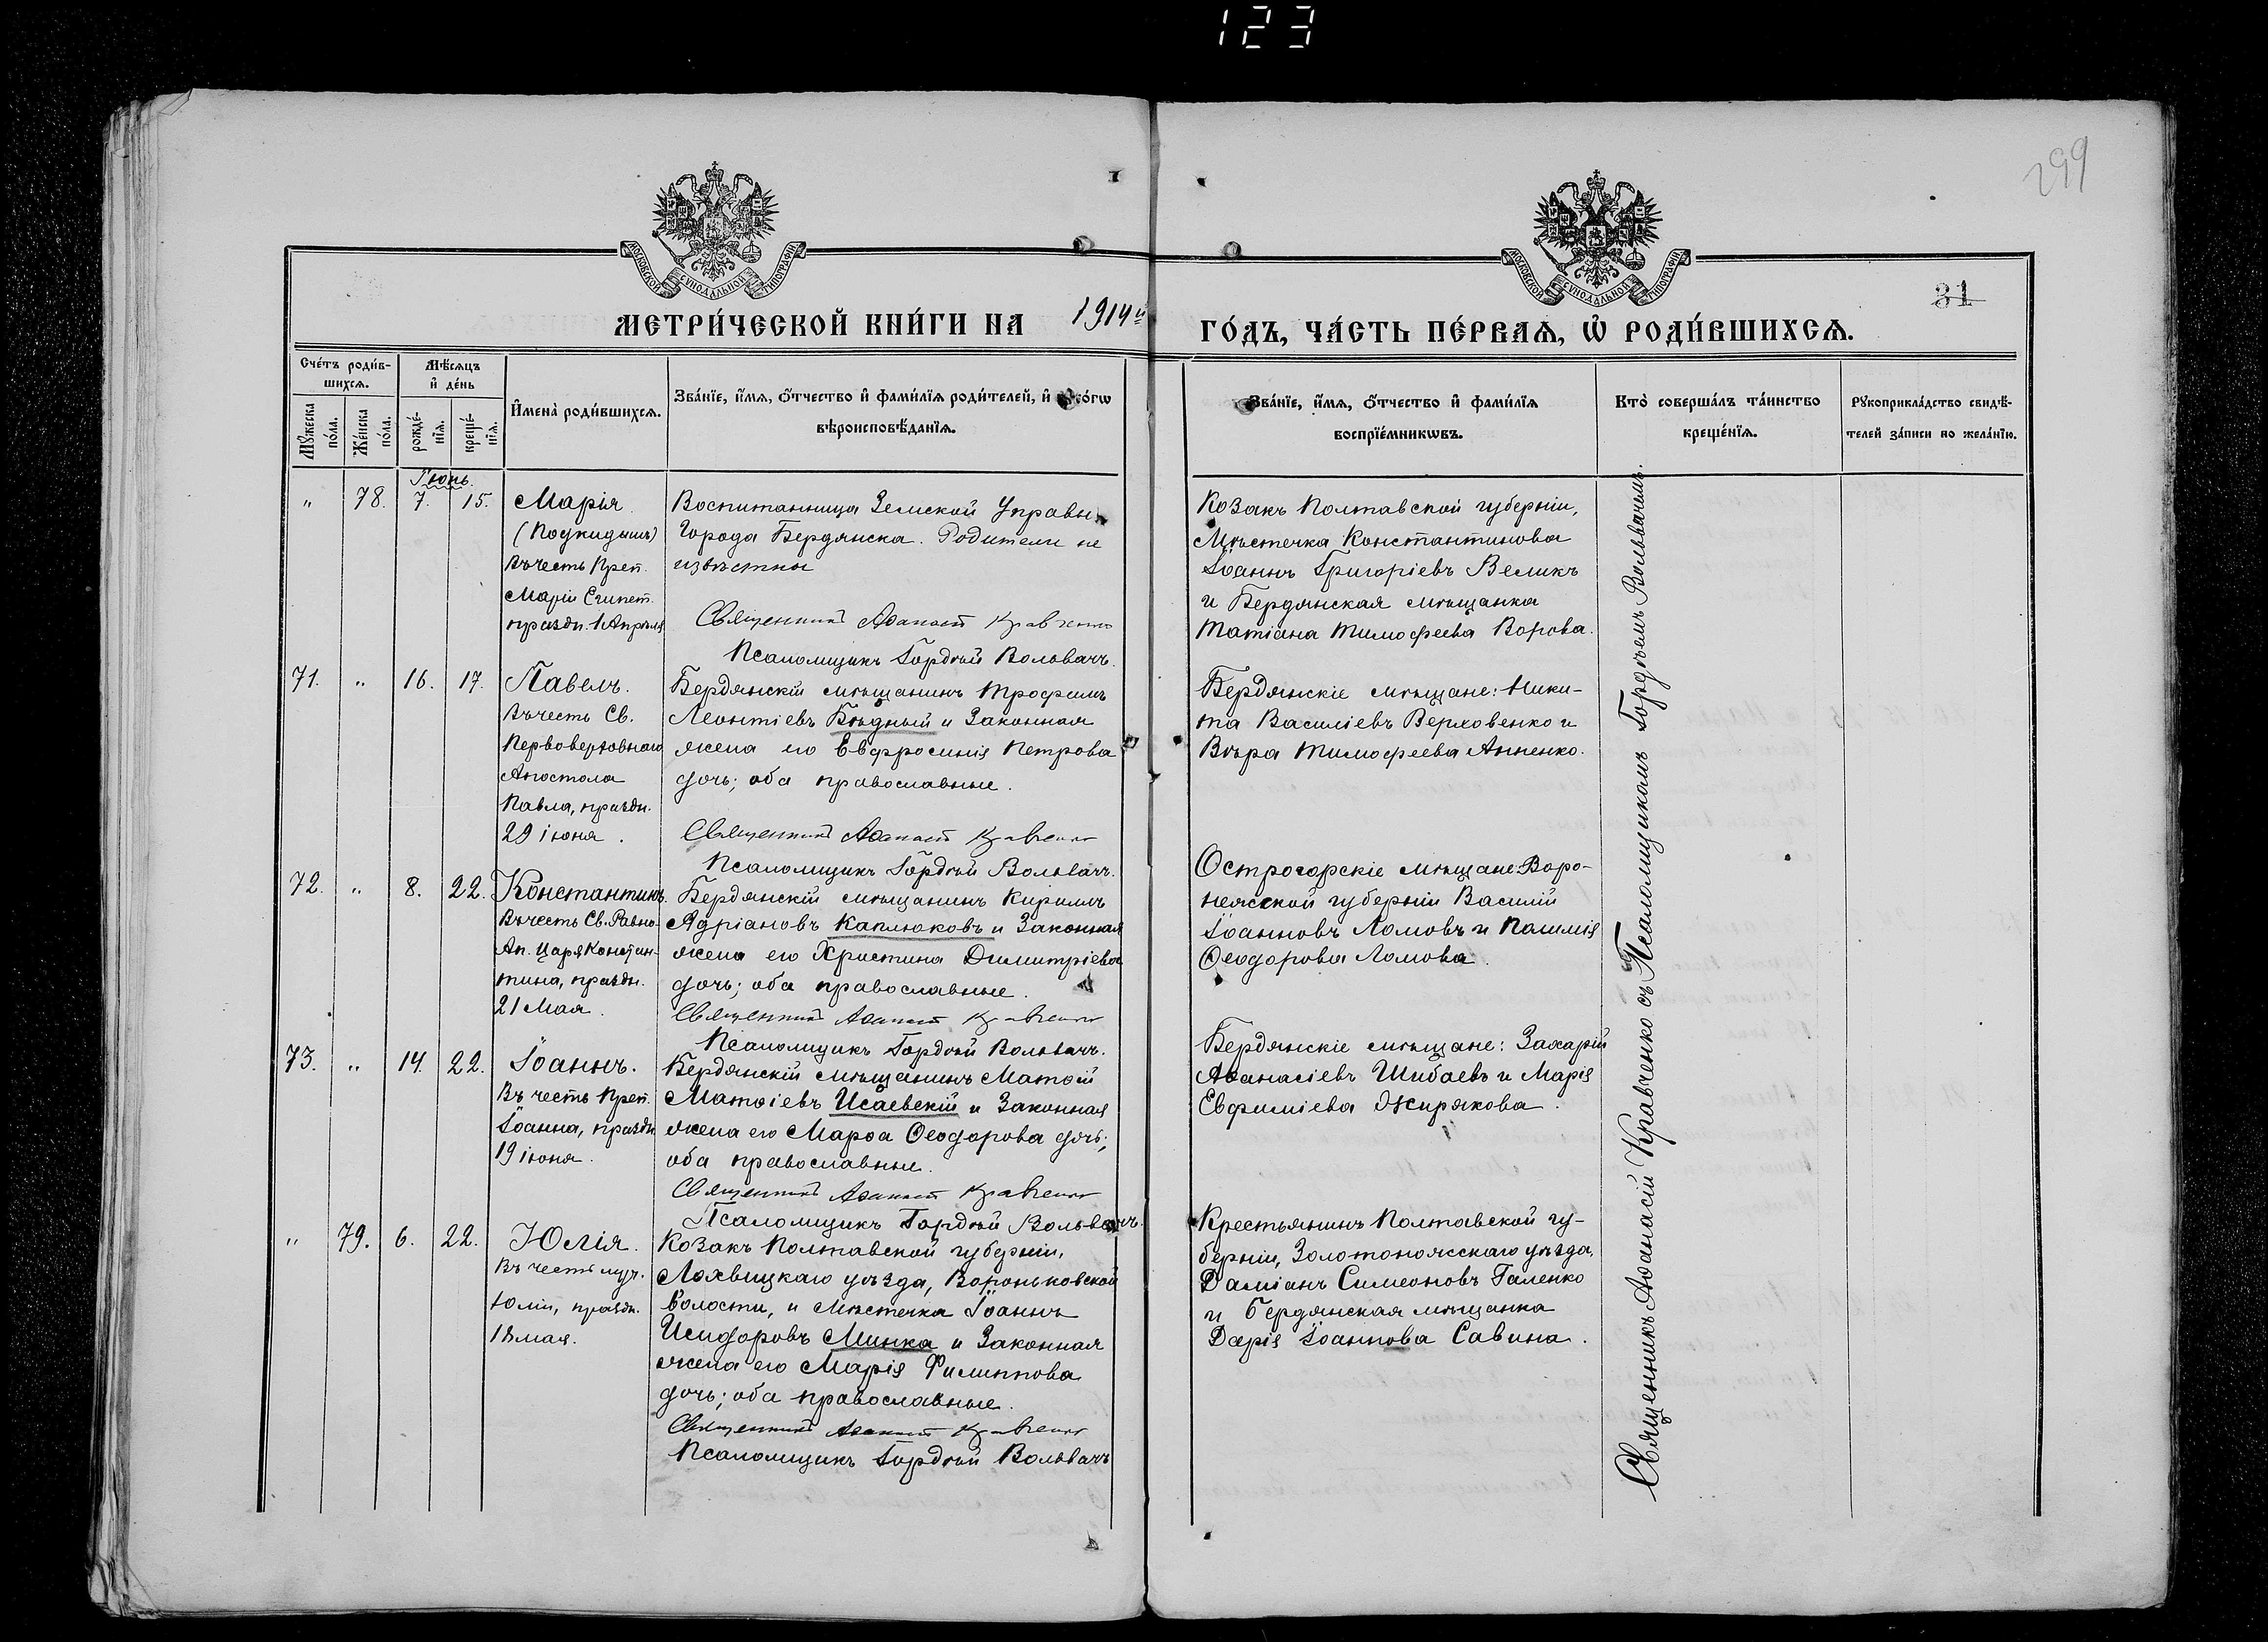 123
299
МОСКОВСКОЙ СѴНОДАЛЬНОЙ ТИПОГРАФІИ
МОСКОВСКОЙ СѴНОДАЛЬНОЙ ТИПОГРАФІИ
31
МЕТРИ́ЧЕСКОЙ КНИ́ГИ НА 1914й
ГО́ДЪ, ЧА́СТЬ ПЕ́РВАѦ, Ѡ҆ РОДИ́ВШИХСѦ.
Сче́тъ роди́в-
шихсѧ.
Мѣ́сѧцъ
и҆ де́нь
Мꙋ́жеска
по́ла.
Же́нска
по́ла.
рожде́-
нїѧ.
креще́-
нїѧ.
И҆мена̀ роди́вшихсѧ.
Зва́нїе, и҆́мѧ, ѻ҆́тчество и҆ фами́лїѧ роди́телей, и҆ како́гѡ
вѣроисповѣ́данїѧ.
Зва́нїе, и҆́мѧ, ѻ҆́тчество и҆ фами́лїѧ
воспрїе́мникѡвъ.
Кто̀ соверша́лъ та́инство
креще́нїѧ.
Рꙋкоприкла́дство свидѣ́-
телей за́писи по жела́нїю.
Іюнь.
" 78. 7. 15. Марія
(Подкидышъ)
Въ честь Преп.
Маріи Египет.
праздн. 1 Апрѣля
Воспитанница Земской Управы
Города Бердянска. Родители не
извѣстны
Священникъ Аѳанасій Кравченко
Псаломщикъ Гордѣй Вольвачъ.
Козакъ Полтавской губерніи,
Мѣстечка Константинова
Іоаннъ Григоріевъ Великъ
и Бердянская мѣщанка
Татіана Тимофеева Ворова.
71. " 16. 17. Павелъ.
Въ честь Св.
Первоверховнаго
Апостола
Павла, праздн.
29 іюня.
Бердянскій мѣщанинъ Трофимъ
Леонтіевъ Бѣдный и Законная
жена его Евфросинія Петрова
дочь; оба православные.
Священникъ Аѳанасій Кравченко
Псаломщикъ Гордѣй Вольвачъ.
Бердянскіе мѣщане: Ники-
та Василіевъ Верховенко и
Вѣра Тимофеева Анненко.
72. " 8. 22. Константинъ.
Въ честь Св. Равно-
Ап. Царя Констан-
тина, праздн.
21 Мая.
Бердянскій мѣщанинъ Кириллъ
Адріановъ Каплюковъ и Законная
жена его Христина Димитріева
дочь; оба православные.
Священникъ Аѳанасій Кравченко
Псаломщикъ Гордѣй Вольвачъ.
Острогорскіе мѣщане Воро-
нежской губерніи Василій
Іоанновъ Ломовъ и
Ѳеодорова Ломова.
73. " 14. 22. Іоаннъ.
Въ честь Преп.
Іоанна, праздн.
19 іюня.
Бердянскій мѣщанинъ Матѳій
Матѳіевъ Исаевскій и Законная
жена его Марѳа Ѳеодорова дочь;
оба православные.
Священникъ Аѳанасій Кравченко
Псаломщикъ Гордѣй Вольвачъ.
Бердянскіе мѣщане: Захарій
Аѳанасіевъ Шибаевъ и Марія
Евфиміева Жирякова.
" 79. 6. 22. Юлія.
Въ честь муч.
Юліи, праздн.
18 мая.
Козакъ Полтавской губерніи,
Лохвицкаго уѣзда, Вороньковской
волости, и мѣстечка Іоаннъ
Исидоровъ Минка и Законная
жена его Марія Филиппова
дочь; оба православные.
Священникъ Аѳанасій Кравченко
Псаломщикъ Гордѣй Вольвачъ
Крестьянинъ Полтавской гу-
берніи, Золотоножскаго уѣзда,
Даміанъ Симеоновъ Галенко
и бердянская мѣщанка
Дарія Іоаннова Савина.
Священникъ Аѳанасій Кравченко съ Псаломщикомъ Гордѣемъ Вольвачемъ.